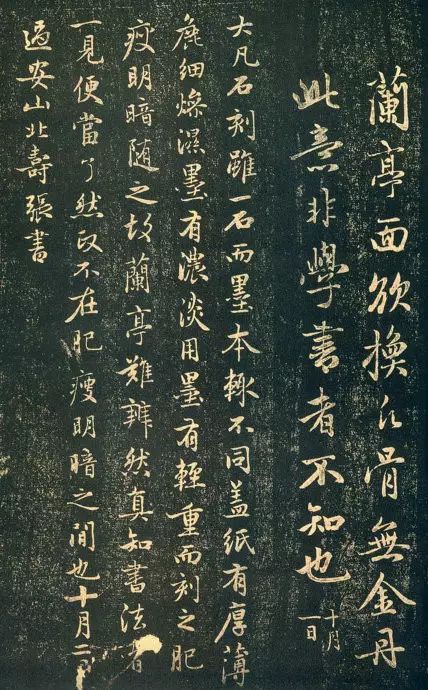 蘭亭面欲換凡骨無金丹
此意非學書者不知也十月一日
大凡石刻雖一石而墨本輒不同蓋紙有厚薄
麁細燥濕墨有濃淡用墨有輕重而刻之肥
瘦明暗随之故蘭亭難辨然真知書法者
一見便當了然政不在肥瘦明暗之間也十月二日
過安山北壽張書